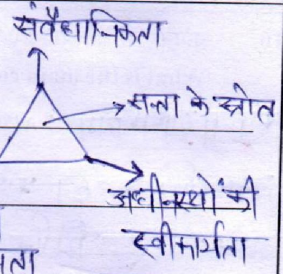 संवैधानिकता
सत्ता के स्रोत
अधीनस्थों की
स्वीकार्यता
ता